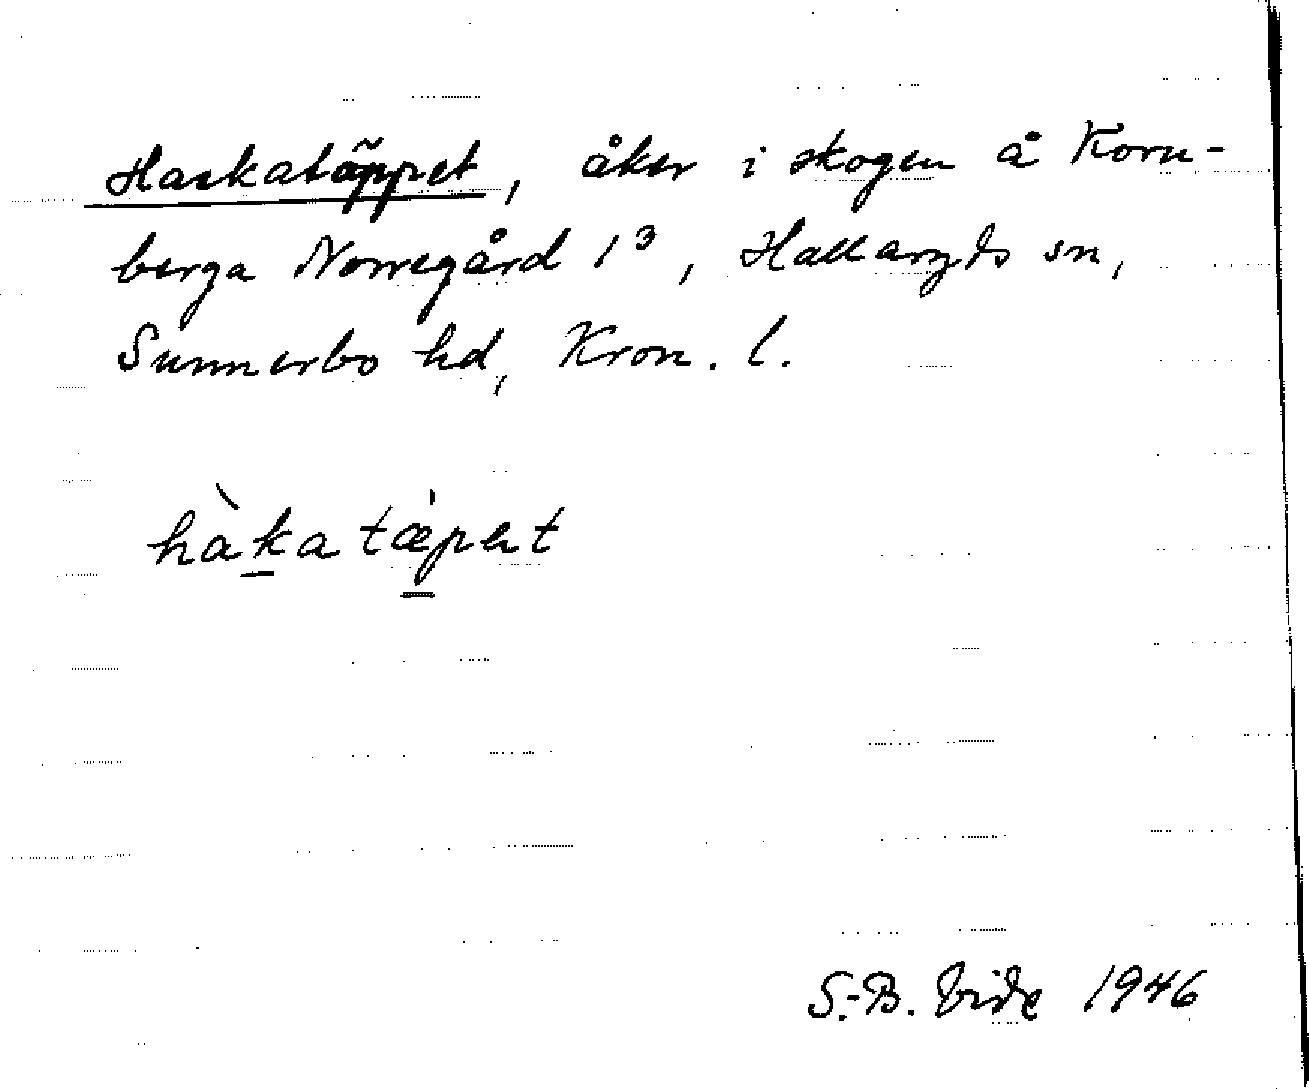 Hackatäppet, åker i skogen å Korn-
berga Norregård 1³, Hallaryds sn,
Sunnerbo hd, Kron. l.
hàkatæpet
S.-B. Vide 1946